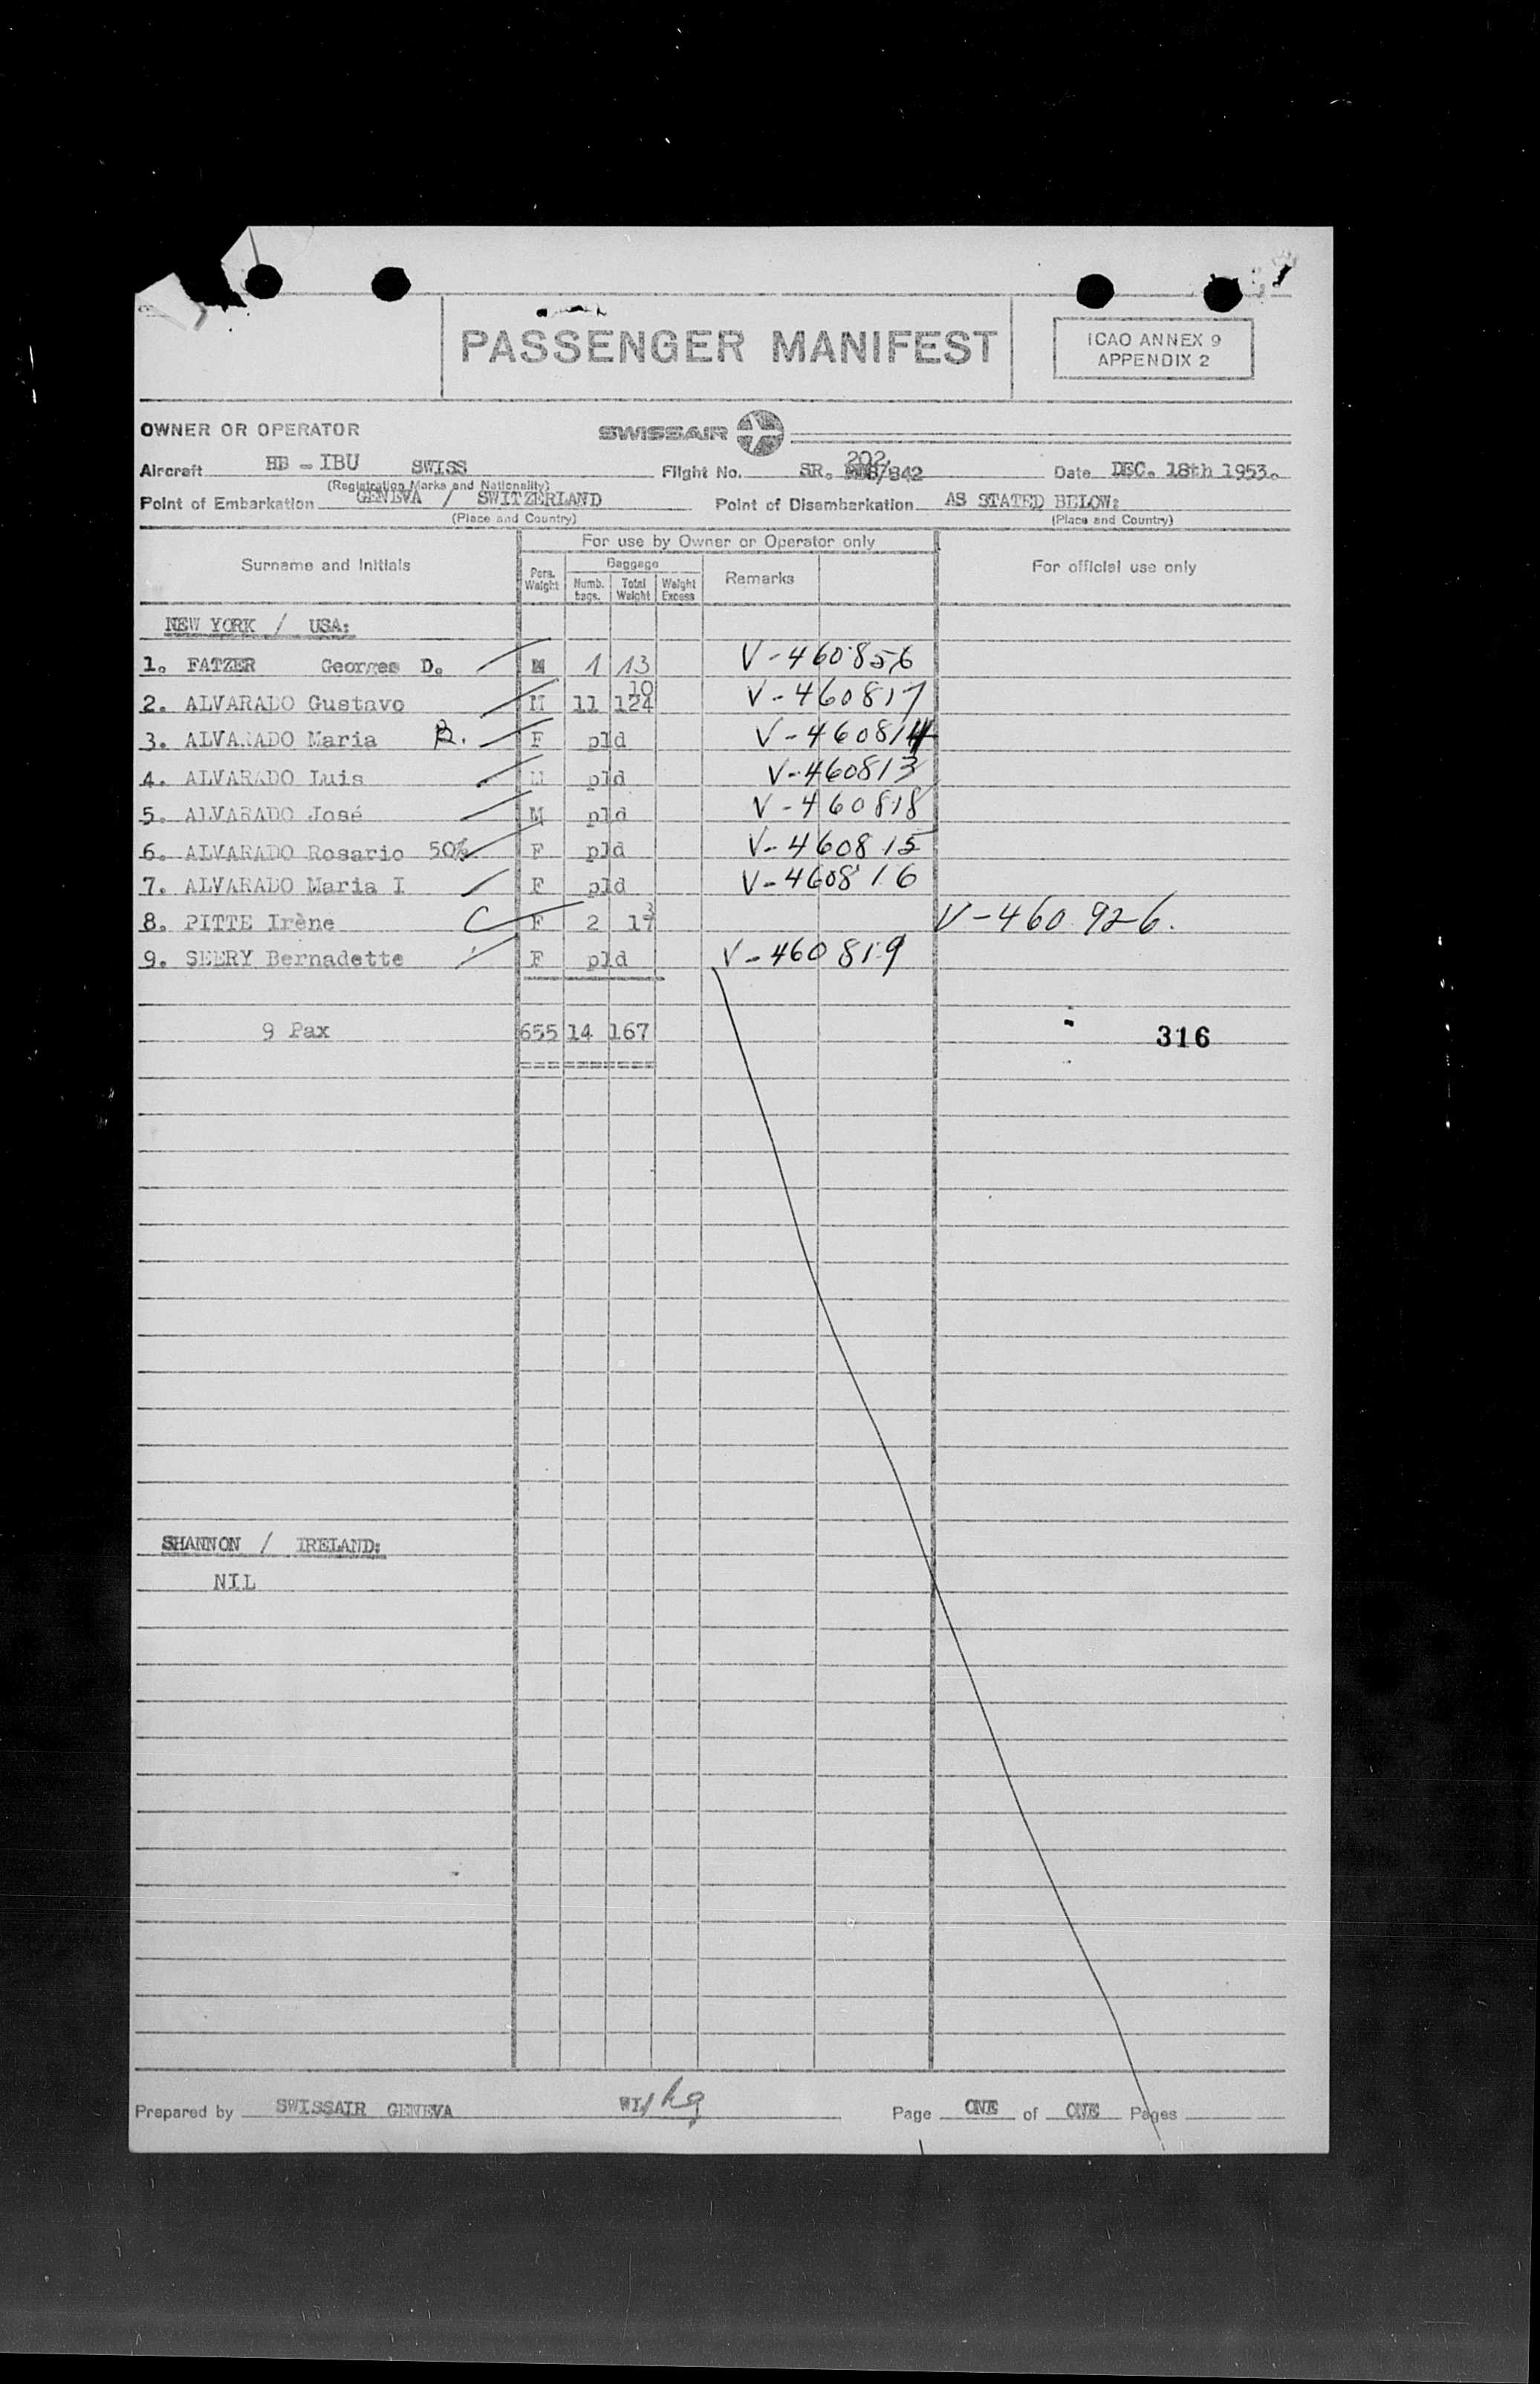 PASSENGER MANIFEST
ICAO ANNEX 9
APPENDIX 2
OWNER OR OPERATOR SWISSAIR
202
Aircraft HB - IBU SWISS Flight No. SR. /842 Date DEC. 18th 1953.
(Registration Marks and Nationality)
Point of Embarkation GENEVA / SWITZERLAND Point of Disembarkation AS STATED BELOW:
(Place and Country) (Place and Country)
Surname and Initials For use by Owner or Operator only For official use only
Pers. Weight Baggage Remarks
Numb. bags. Total Weight Weight Excess
NEW YORK / USA:
1. FATZER Georges D. M 1 13 V-460856
10
2. ALVARADO Gustavo M 11 124 V-460817
3. ALVARADO Maria R. F pld V-460814
4. ALVARADO Luis M pld V-460813
5. ALVARADO José M pld V-460818
6. ALVARADO Rosario 50% F pld V-460815
7. ALVARADO Maria I F pld V-460816
3
8. PITTE Irène C F 2 17 V-460926.
9. SEERY Bernadette F pld V-460819
9 Pax 655 14 167 316
SHANNON / IRELAND:
NIL
Prepared by SWISSAIR GENEVA WI/ Page ONE of ONE Pages